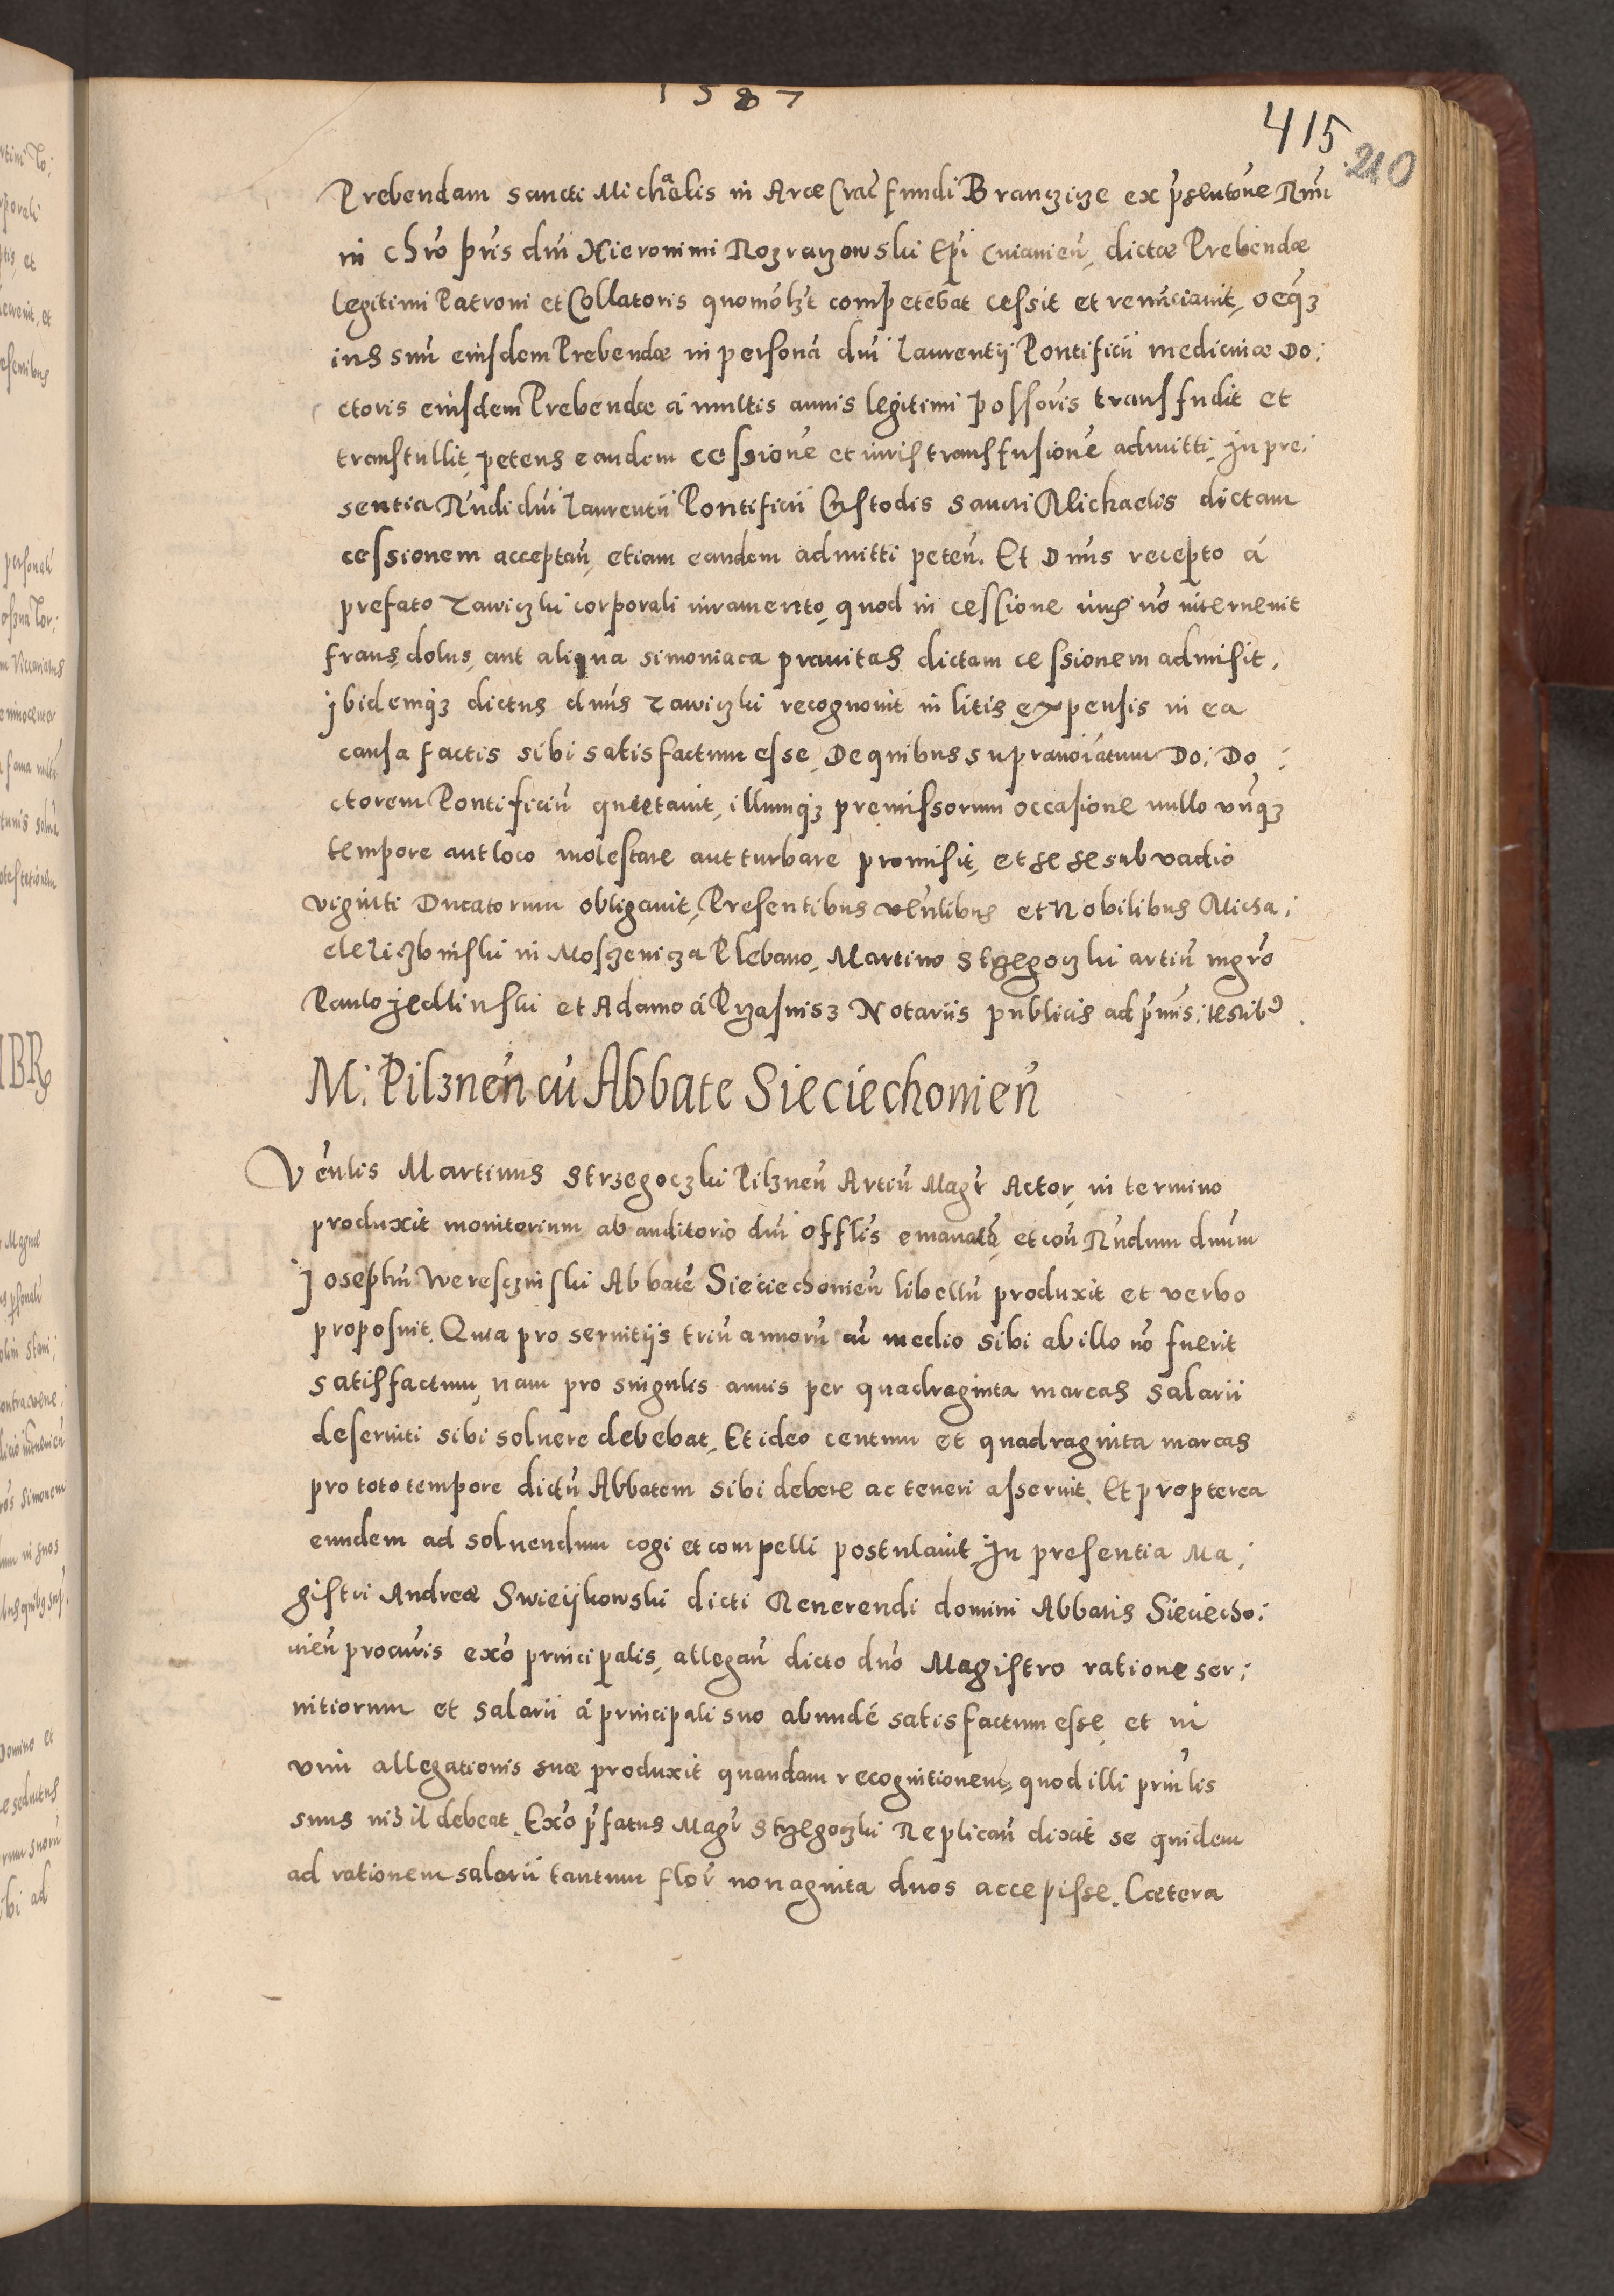 1587
415
210
Prebendam sancti Michaelis in Arce Crac̄ fundi Branczicze ex p̄sentōne Rm̄i
in chr̄o pr̄is dn̄i Hieronimi Rozrazowski Ep̄i Cuiauien̄, dictæ Prebendæ
legitimi Patroni et Collatoris quomōlz̄t competebat cessit et renunciauit, oēq3
ius suū eiusdem Prebendæ in personā dn̄i Laurentij Pontificii medicinæ Do:
ctoris eiusdem Prebendæ á multis annis legitimi possōris transfudit et
transtullit, petens eandem cessionē et iuris transfusionē admitti, In pre:
sentia Rn̄di dn̄i Laurentii Pontificii Custodis sancti Michaelis dictam
cessionem acceptan̄, etiam eandem admitti peten̄. Et Dn̄us recepto á
prefato Zawiczki corporali iuramento, quod in cessione iuris nō interuenit
fraus, dolus, aut aliqua simoniaca prauitas dictam cessionem admisit,
Ibidemq3 dictus dn̄us Zawiczki recognouit in litis expensis in ea
causa factis sibi satisfactum esse, De quibus supranoīatum Do: Do:
ctorem Pontificiū quietauit, illumq3 premissorum occasione nullo vnq3
tempore aut loco molestare aut turbare promisit, et se se sub vadio
viginti Ducatorum obligauit, Presentibus ven̄libus et Nobilibus Micha:
ele Liczbinski in Mosczenicza Plebano, Martino Strzegoczki artiū mgr̄o
Paulo Jedlinski et Adamo á Przasnisz Notariis publicis ad p̄mis: testib9
M: Pilznen̄ cū Abbate Sieciechouien̄
Ven̄lis Martinus Strzegoczki Pilznen̄ Artiū Magr̄ Actor, in termino
produxit monitorium ab auditorio dn̄i offlis emanatū, et con̄ Rn̄dum dn̄um
Josephū Weresczinski Abbatē Sieciechouien̄ libellū produxit et verbo
proposuit. Quia pro seruitijs triū annorū cū medio sibi ab illo nō fuerit
satisfactum, nam pro singulis annis per quadraginta marcas salarii
deseruiti sibi soluere debebat, Et ideo centum et quadraginta marcas
pro toto tempore dictū Abbatem sibi debere ac teneri asseruit. Et propterea
eundem ad soluendum cogi et compelli postulauit, In presentia Ma:
gistri Andreæ Swieijkowski dicti Reuerendi domini Abbatis Sieciecho:
uien̄ procuris exō principalis, allegan̄ dicto dn̄o Magistro ratione ser:
uitiorum et salarii á principali suo abundé satisfactum esse, et in
vim allegationis suæ produxit quandam recognitionem, quod illi prin̄lis
suus nihil debeat. Exō p̄fatus Magr̄ Strzegoczki Replican̄ dixit se quidem
ad rationem salarii tantum flor̄ nonaginta duos accepisse. Cætera